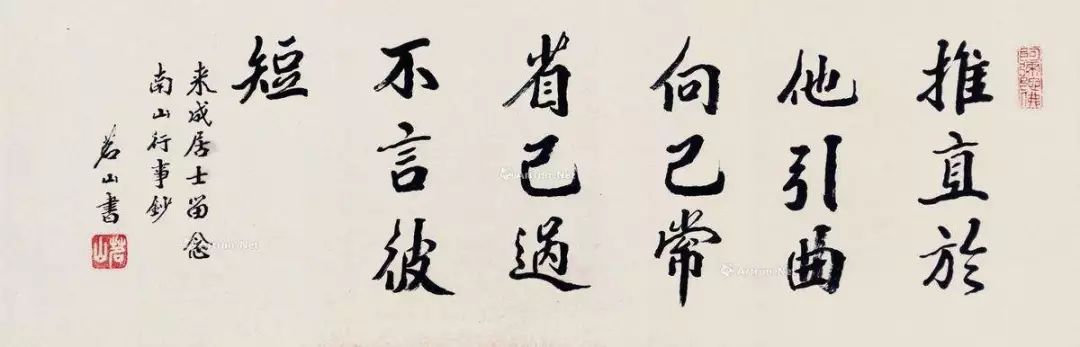 推直於
他引曲
向己常
省已過
不言彼
短
来成居士留念
南山行事鈔
若山書
若山
Artron.Net
Artron.Net
Artron.Net